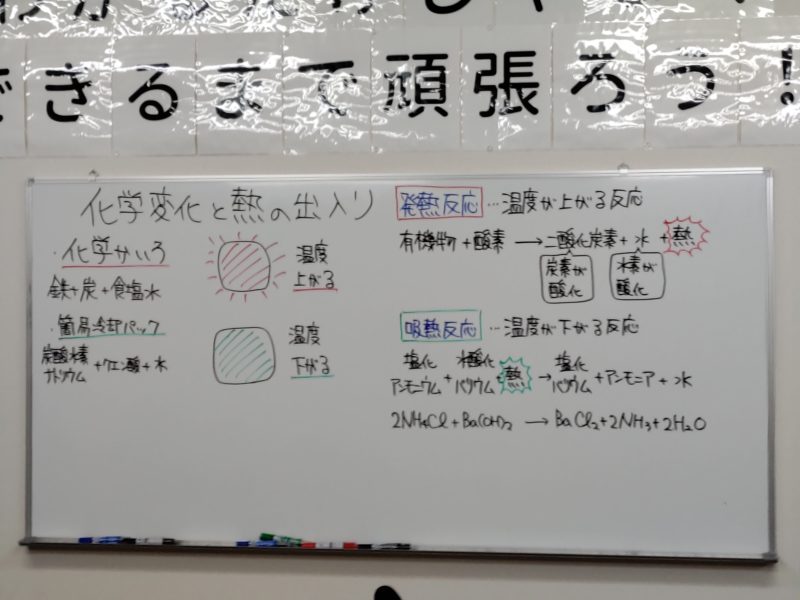 できるまで頑張ろう！
化学変化と熱の出入り
・化学かいろ
鉄+炭+食塩水
温度
上がる
・簡易冷却パック
炭酸水素
ナトリウム
+クエン酸+水
温度
下がる
発熱反応…温度が上がる反応
有機物+酸素→二酸化炭素+水+熱
炭素が
酸化
水素が
酸化
吸熱反応…温度が下がる反応
塩化
アンモニウム
+
水酸化
バリウム
+熱→
塩化
バリウム
+アンモニア+水
2NH4Cl+Ba(OH)2→BaCl2+2NH3+2H2O